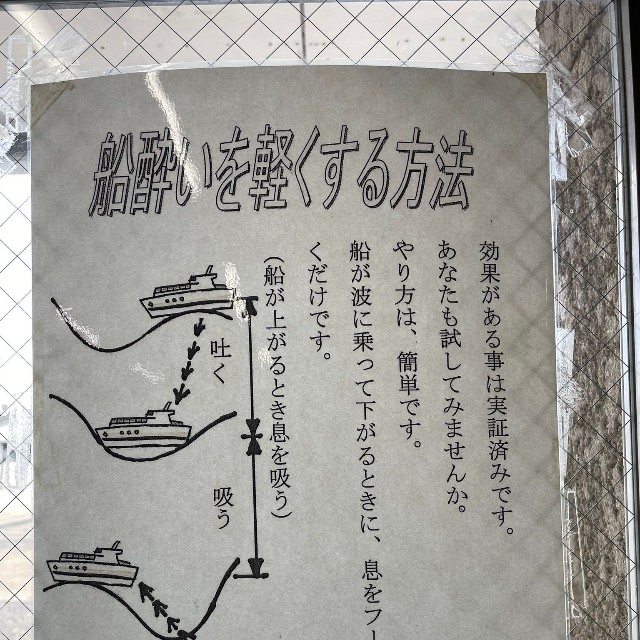 船酔いを軽くする方法
効果がある事は実証済みです。
あなたも試してみませんか。
やり方は、簡単です。
船が波に乗って下がるときに、息をフー
くだけです。
(船が上がるとき息を吸う)
吐く
吸う